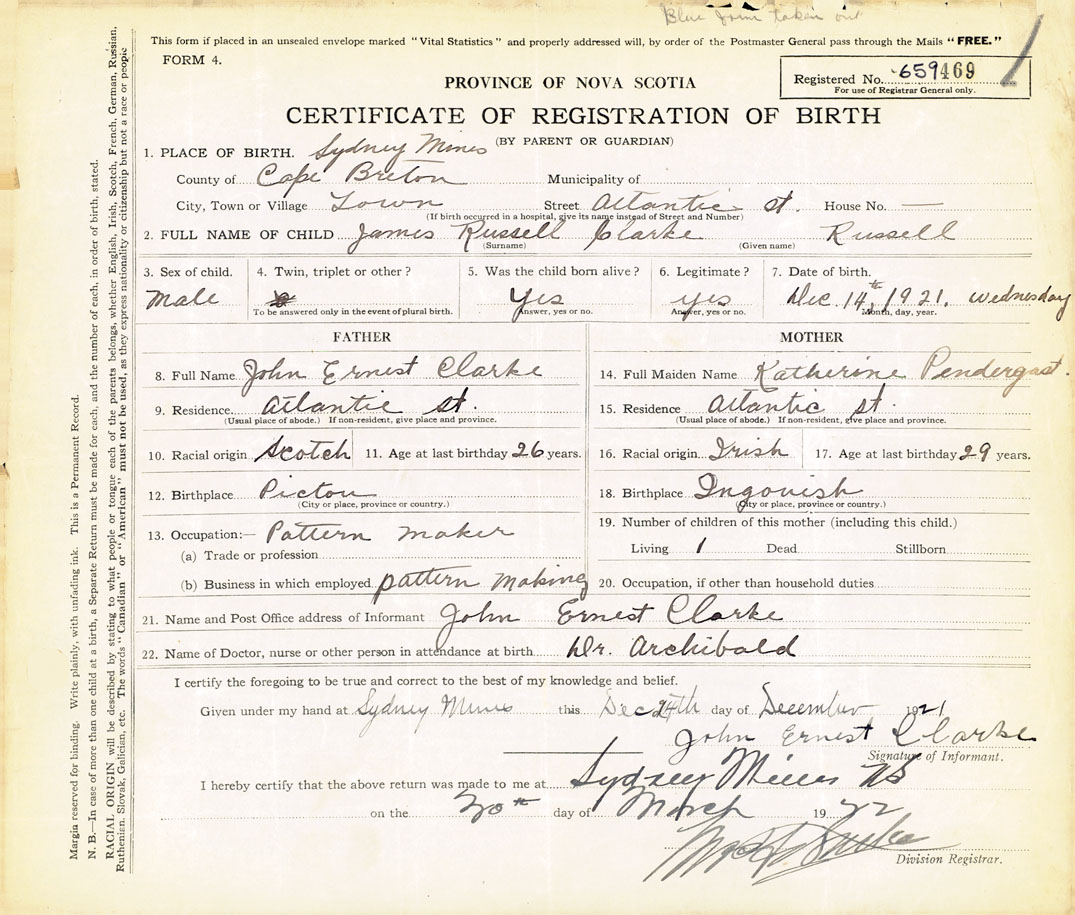 Blue form taken out
This form if placed in an unsealed envelope marked "Vital Statistics" and properly addressed will, by order of the Postmaster General pass through the Mails "FREE."
FORM 4.
PROVINCE OF NOVA SCOTIA
Registered No. 659469
For use of Registrar General only.
CERTIFICATE OF REGISTRATION OF BIRTH
(BY PARENT OR GUARDIAN)
1. PLACE OF BIRTH. Sydney Mines
County of Cape Breton Municipality of
City, Town or Village Town Street Atlantic st. House No. —
(If birth occurred in a hospital, give its name instead of Street and Number)
2. FULL NAME OF CHILD James Russell Clarke Russell
(Surname) (Given name)
3. Sex of child. 4. Twin, triplet or other? 5. Was the child born alive? 6. Legitimate? 7. Date of birth.
Male Yes yes Dec. 14th, 1921. Wednesday
To be answered only in the event of plural birth. Answer, yes or no. Answer, yes or no. Month, day, year.
FATHER MOTHER
8. Full Name John Ernest Clarke 14. Full Maiden Name Katherine Pendergast.
9. Residence Atlantic st. 15. Residence Atlantic st.
(Usual place of abode.) If non-resident, give place and province. (Usual place of abode.) If non-resident, give place and province.
10. Racial origin Scotch 11. Age at last birthday 26 years. 16. Racial origin Irish 17. Age at last birthday 29 years.
12. Birthplace Picton 18. Birthplace Ingonish
(City or place, province or country.) (City or place, province or country.)
13. Occupation:— Pattern maker 19. Number of children of this mother (including this child.)
(a) Trade or profession Living 1 Dead Stillborn
(b) Business in which employed pattern making 20. Occupation, if other than household duties
21. Name and Post Office address of Informant John Ernest Clarke
22. Name of Doctor, nurse or other person in attendance at birth Dr. Archibald
I certify the foregoing to be true and correct to the best of my knowledge and belief.
Given under my hand at Sydney Mines this Dec 24th day of December 1921
John Ernest Clarke
Signature of Informant.
I hereby certify that the above return was made to me at Sydney Mines NS
on the 30th day of March 1922
Division Registrar.
Margin reserved for binding. Write plainly, with unfading ink. This is a Permanent Record.
N. B.—In case of more than one child at a birth, a Separate Return must be made for each, and the number of each, in order of birth, stated.
RACIAL ORIGIN will be described by stating to what people or tongue each of the parents belongs, whether English, Irish, Scotch, French, German, Russian,
Ruthenian, Slovak, Galician, etc. The words "Canadian" or "American" must not be used, as they express nationality or citizenship but not a race or people